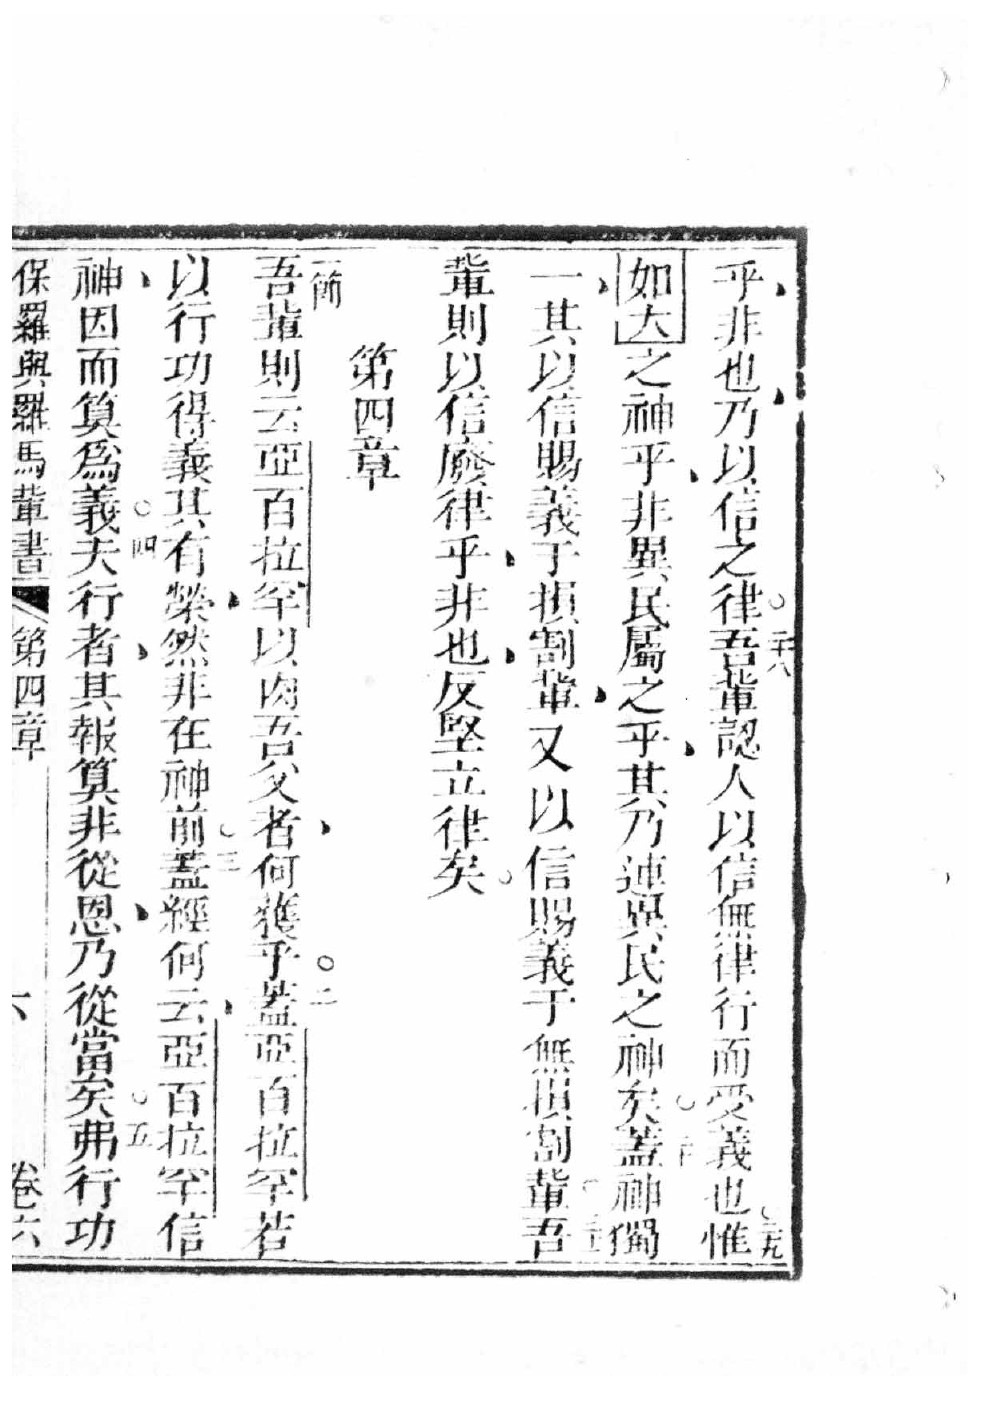 乎非也乃以信之律。二十八吾輩認人以信無律行而受義也。二十九惟
如大之神乎非異民屬之乎其乃連異民之神矣。三十蓋神獨
一其以信賜義于損割輩又以信賜義于無損割輩。三十一吾
輩則以信廢律乎非也反堅立律矣。
第四章
一節吾輩則云亞百拉罕以肉吾父者何獲乎。二蓋亞百拉罕若
以行功得義其有榮然非在神前。三蓋經何云亞百拉罕信
神因而算爲義。四夫行者其報算非從恩乃從當矣。五弗行功
保羅與羅馬輩書 第四章 六 卷六